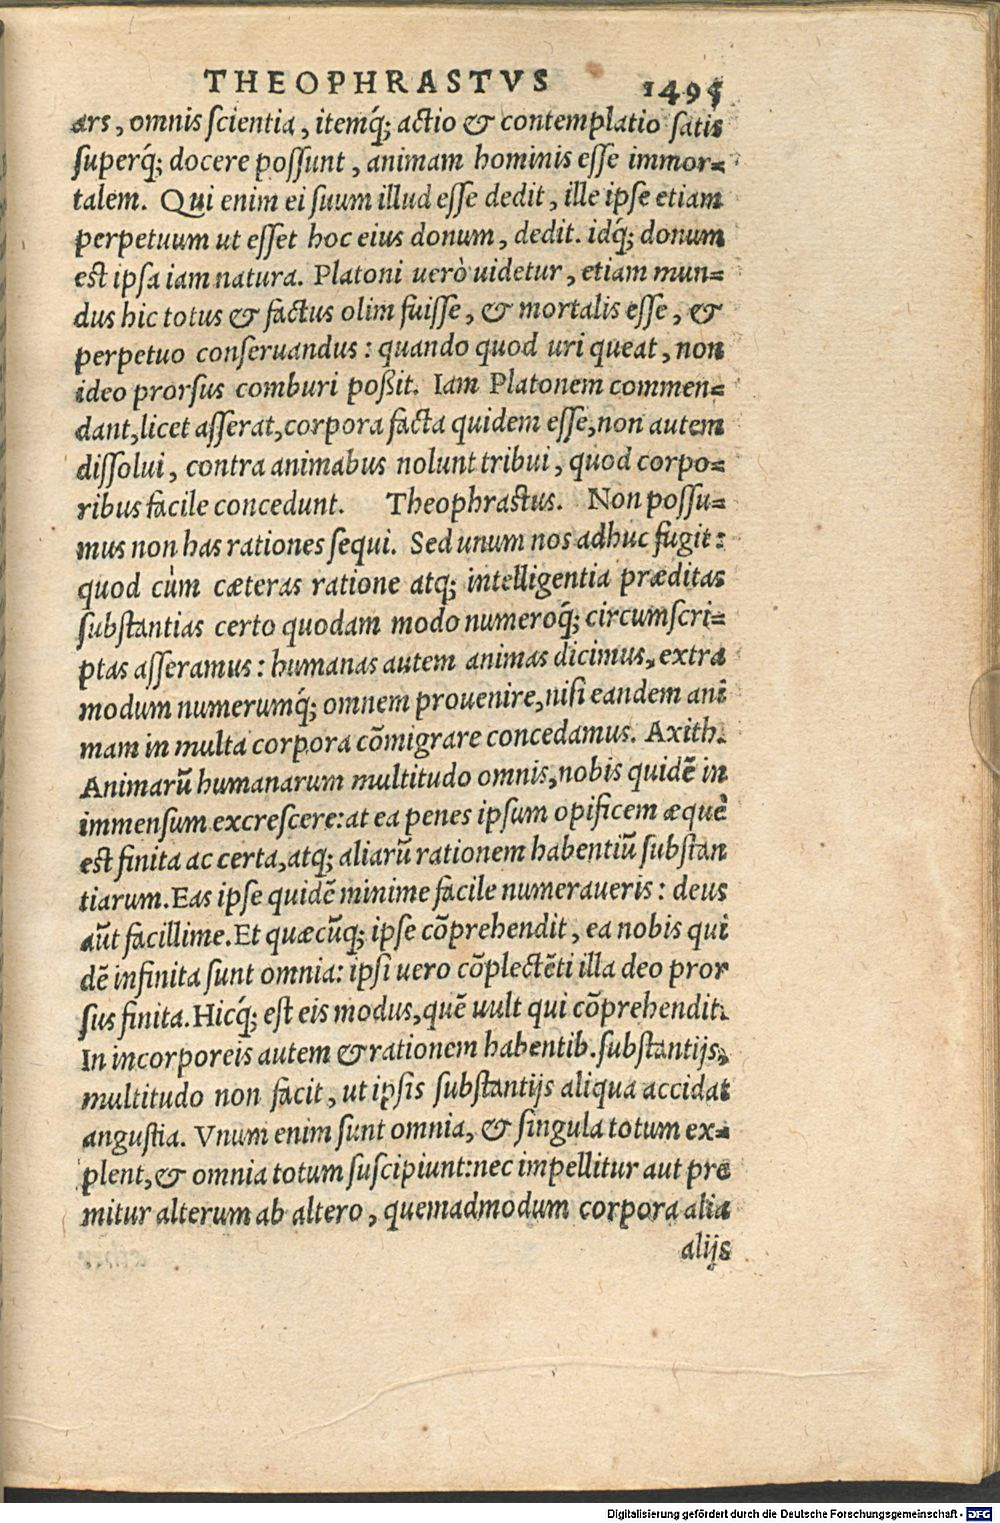 THEOPHRASTVS 1495
ars, omnis scientia, itemq́; actio & contemplatio satis
superq́; docere possunt, animam hominis esse immor=
talem. Qui enim ei suum illud esse dedit, ille ipse etiam
perpetuum ut esset hoc eius donum, dedit. idq́; donum
est ipsa iam natura. Platoni uerò uidetur, etiam mun=
dus hic totus & factus olim fuisse, & mortalis esse, &
perpetuo conseruandus : quando quod uri queat, non
ideo prorsus comburi poßit. Iam Platonem commen=
dant, licet asserat, corpora facta quidem esse, non autem
dissolui, contra animabus nolunt tribui, quod corpo=
ribus facile concedunt. Theophrastus. Non possu=
mus non has rationes sequi. Sed unum nos adhuc fugit :
quod cùm cæteras ratione atq; intelligentia præditas
substantias certo quodam modo numeroq́; circumscri=
ptas asseramus : humanas autem animas dicimus, extra
modum numerumq́; omnem prouenire, nisi eandem ani
mam in multa corpora cōmigrare concedamus. Axith.
Animarū humanarum multitudo omnis, nobis quidē in
immensum excrescere: at ea penes ipsum opificem æquè
est finita ac certa, atq; aliarū rationem habentiū substan
tiarum. Eas ipse quidē minime facile numeraueris : deus
aūt facillime. Et quæcūq; ipse cōprehendit, ea nobis qui
dē infinita sunt omnia: ipsi uero cōplectēti illa deo pror
sus finita. Hicq́; est eis modus, quē uult qui cōprehendit.
In incorporeis autem & rationem habentib. substantijs,
multitudo non facit, ut ipsis substantijs aliqua accidat
angustia. Vnum enim sunt omnia, & singula totum ex=
plent, & omnia totum suscipiunt: nec impellitur aut pre
mitur alterum ab altero, quemadmodum corpora alia
alijs
Digitalisierung gefördert durch die Deutsche Forschungsgemeinschaft - DFG